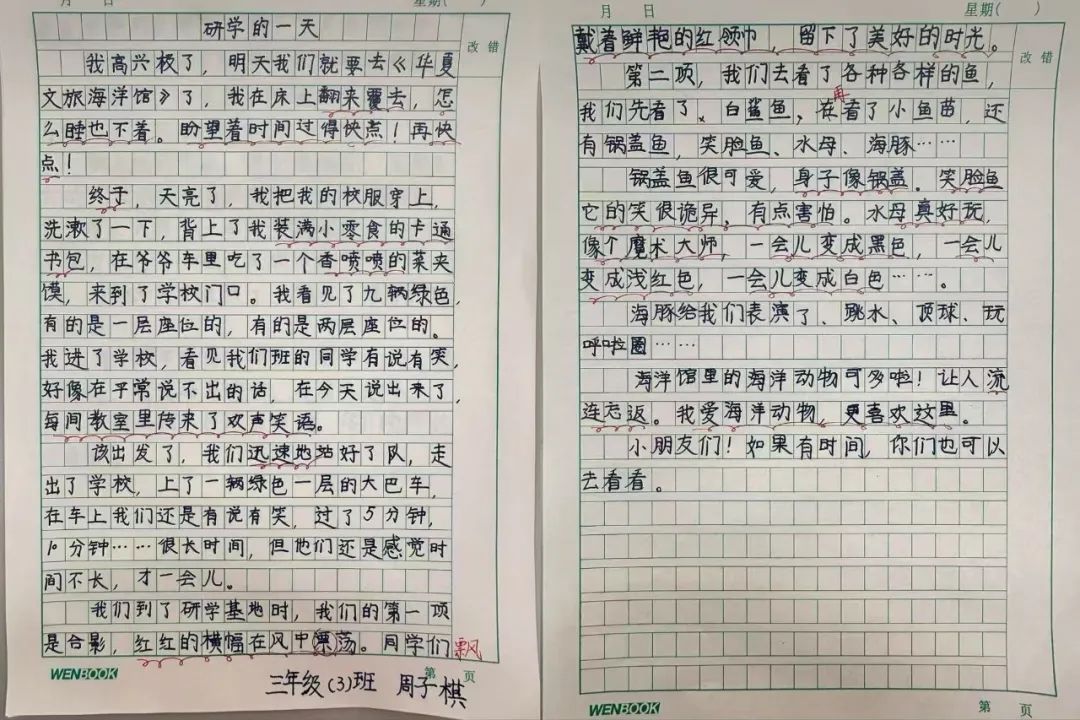 月 日 星期( )
研学的一天
改 错
我高兴极了，明天我们就要去《华夏
文旅海洋馆》了，我在床上翻来覆去，怎
么睡也不着。盼望着时间过得快点！再快
点！
终于，天亮了，我把我的校服穿上，
洗漱了一下，背上了我装满小零食的卡通
书包，在爷爷车里吃了一个香喷喷的菜夹
馍，来到了学校门口。我看见了九辆绿色，
有的是一层座位的，有的是两层座位的。
我进了学校，看见我们班的同学有说有笑，
好像在平常说不出的话，在今天说出来了，
每间教室里传来了欢声笑语。
该出发了，我们迅速地站好了队，走
出了学校，上了一辆绿色一层的大巴车，
在车上我们还是有说有笑，过了5分钟，
10分钟……很长时间，但他们还是感觉时
间不长，才一会儿。
我们到了研学基地时，我们的第一项
是合影，红红的横幅在风中漂荡。同学们
飘
WENBOOK 第 页
三年级(3)班 周子棋
月 日 星期( )
改 错
戴着鲜艳的红领巾，留下了美好的时光。
第二项，我们去看了各种各样的鱼，
再
我们先看了、白鲨鱼，在看了小鱼苗，还
有锅盖鱼，笑脸鱼、水母、海豚……
锅盖鱼很可爱，身子像锅盖。笑脸鱼
它的笑很诡异，有点害怕。水母真好玩，
像个魔术大师，一会儿变成黑色，一会儿
变成浅红色，一会儿变成白色……。
海豚给我们表演了、跳水、顶球、玩
呼啦圈……
海洋馆里的海洋动物可多啦！让人流
连忘返。我爱海洋动物，更喜欢这里。
小朋友们！如果有时间，你们也可以
去看看。
WENBOOK 第 页